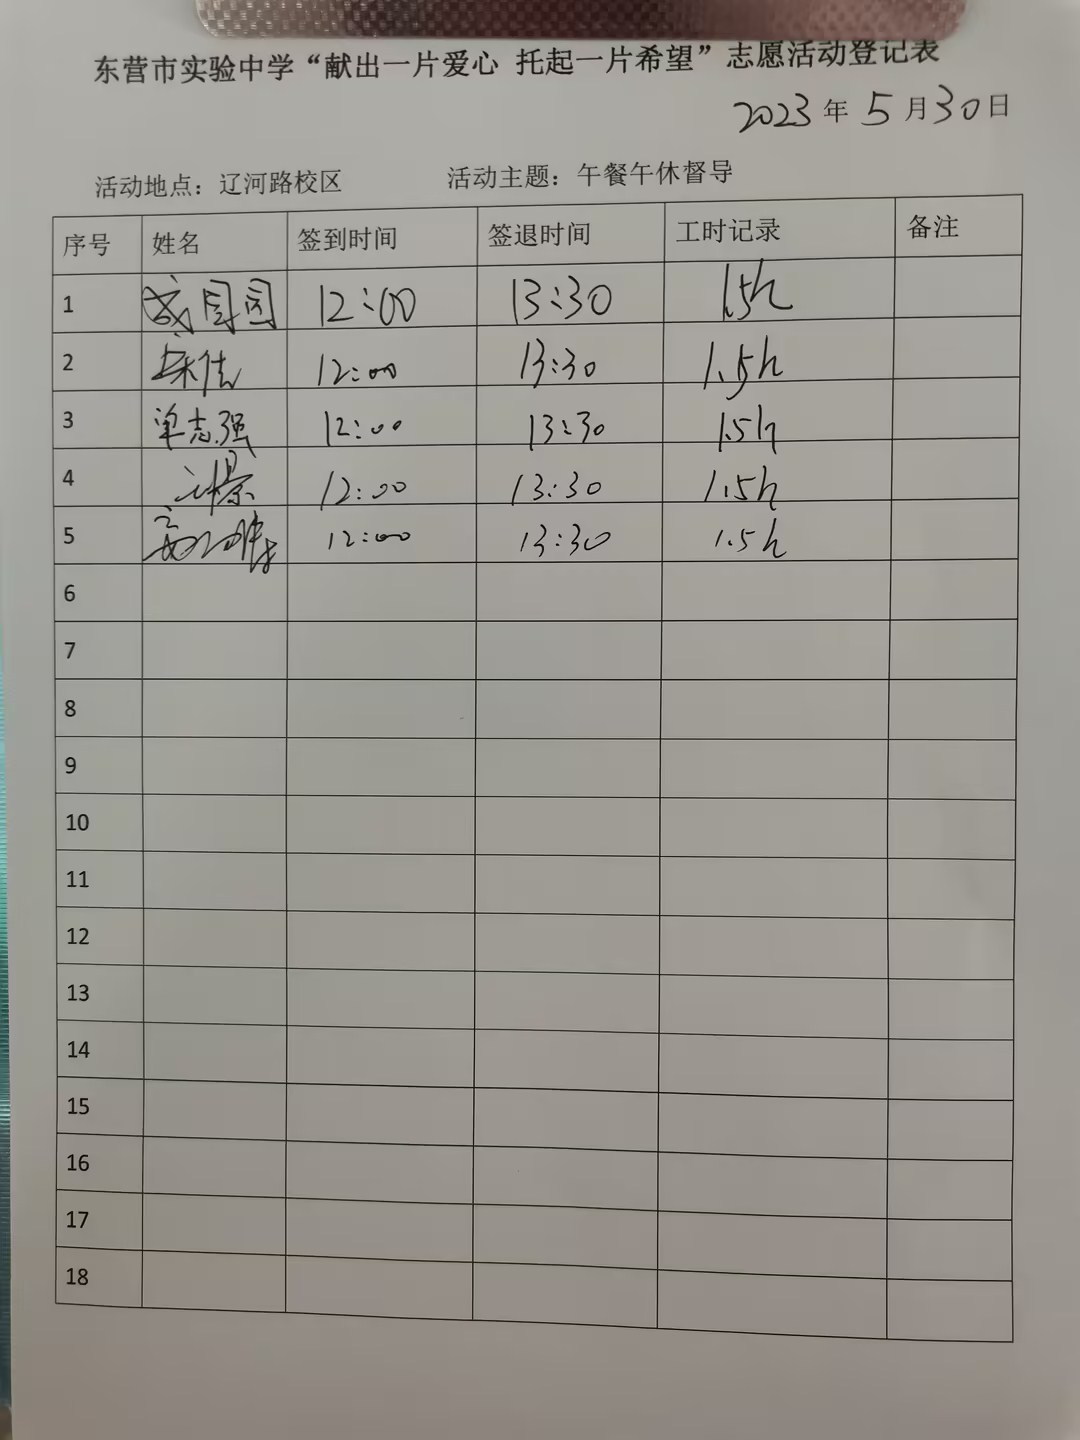 东营市实验中学“献出一片爱心 托起一片希望”志愿活动登记表
2023年5月30日
活动地点：辽河路校区 活动主题：午餐午休督导
序号 姓名 签到时间 签退时间 工时记录 备注
1 12:00 13:30 1.5h
2 12:00 13:30 1.5h
3 单志强 12:00 13:30 1.5h
4 12:00 13:30 1.5h
5 12:00 13:30 1.5h
6
7
8
9
10
11
12
13
14
15
16
17
18